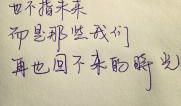 也不指未来
而是那些我们
再也回不来的瞬光